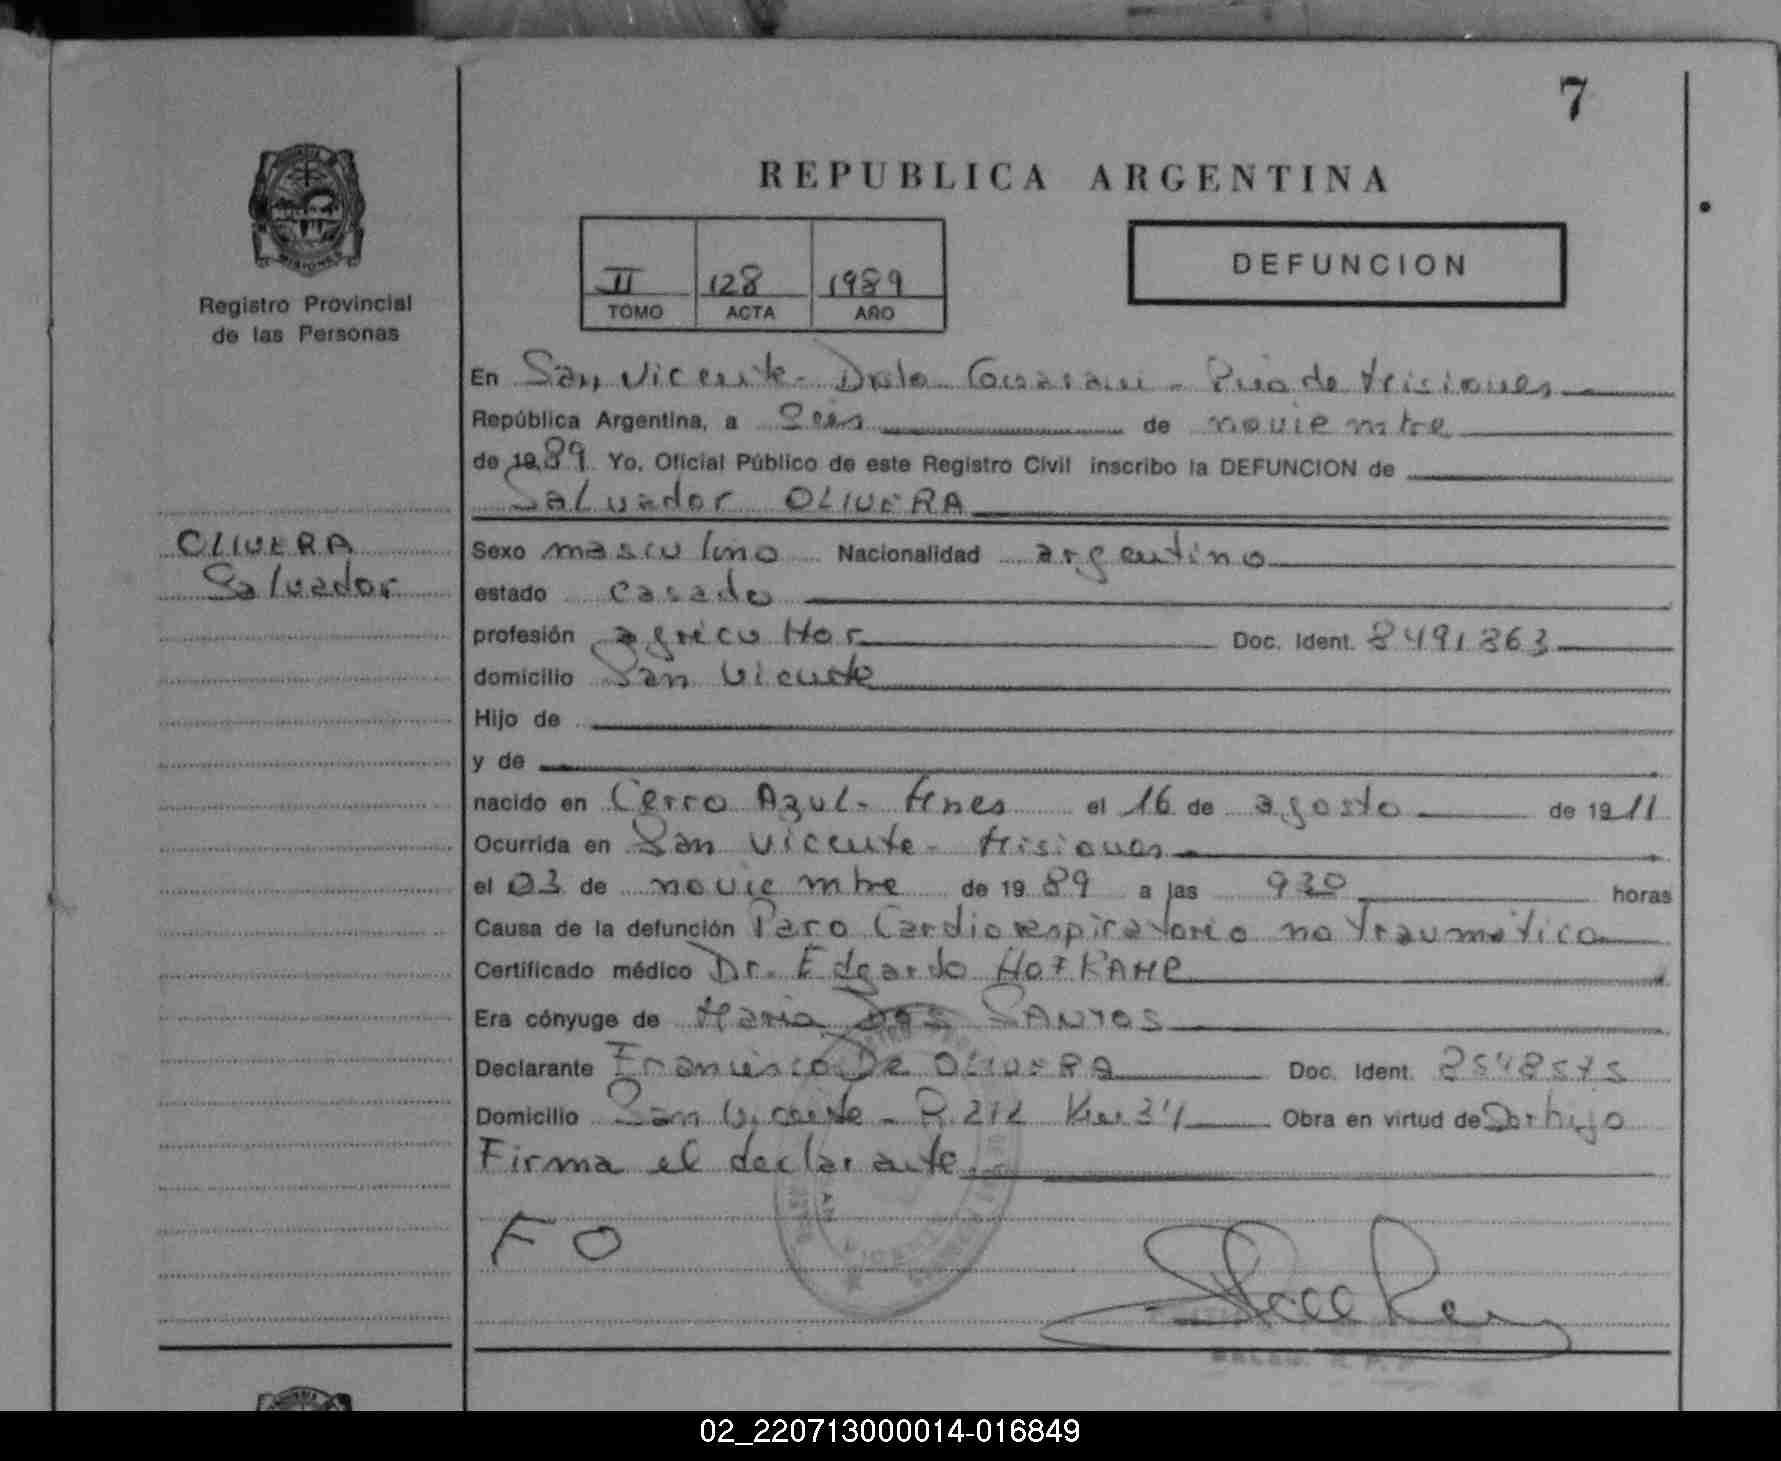 7
PROVINCIA
MISIONES
Registro Provincial
de las Personas
REPUBLICA ARGENTINA
II 128 1989
TOMO ACTA AÑO
DEFUNCION
En San Vicente - Dpto Guarani - Pcia de Misiones
República Argentina, a Seis de noviembre
de 1989 Yo, Oficial Público de este Registro Civil inscribo la DEFUNCION de
Salvador OLIVERA
OLIVERA
Salvador
Sexo masculino Nacionalidad argentino
estado casado
profesión agricultor Doc. Ident. 8491863
domicilio San Vicente
Hijo de
y de
nacido en Cerro Azul - Mnes el 16 de agosto de 1911
Ocurrida en San Vicente - Misiones
el 03 de noviembre de 1989 a las 930 horas
Causa de la defunción Paro Cardiorespiratorio no traumático
Certificado médico Dr. Edgardo HOFKAMP
Era cónyuge de Maria Dos SANTOS
Declarante Francisco De OLIVERA Doc. Ident. 8548575
Domicilio San Vicente - R. 212 Km 34 Obra en virtud de Ser hijo
Firma el declarante
F O
02_220713000014-016849